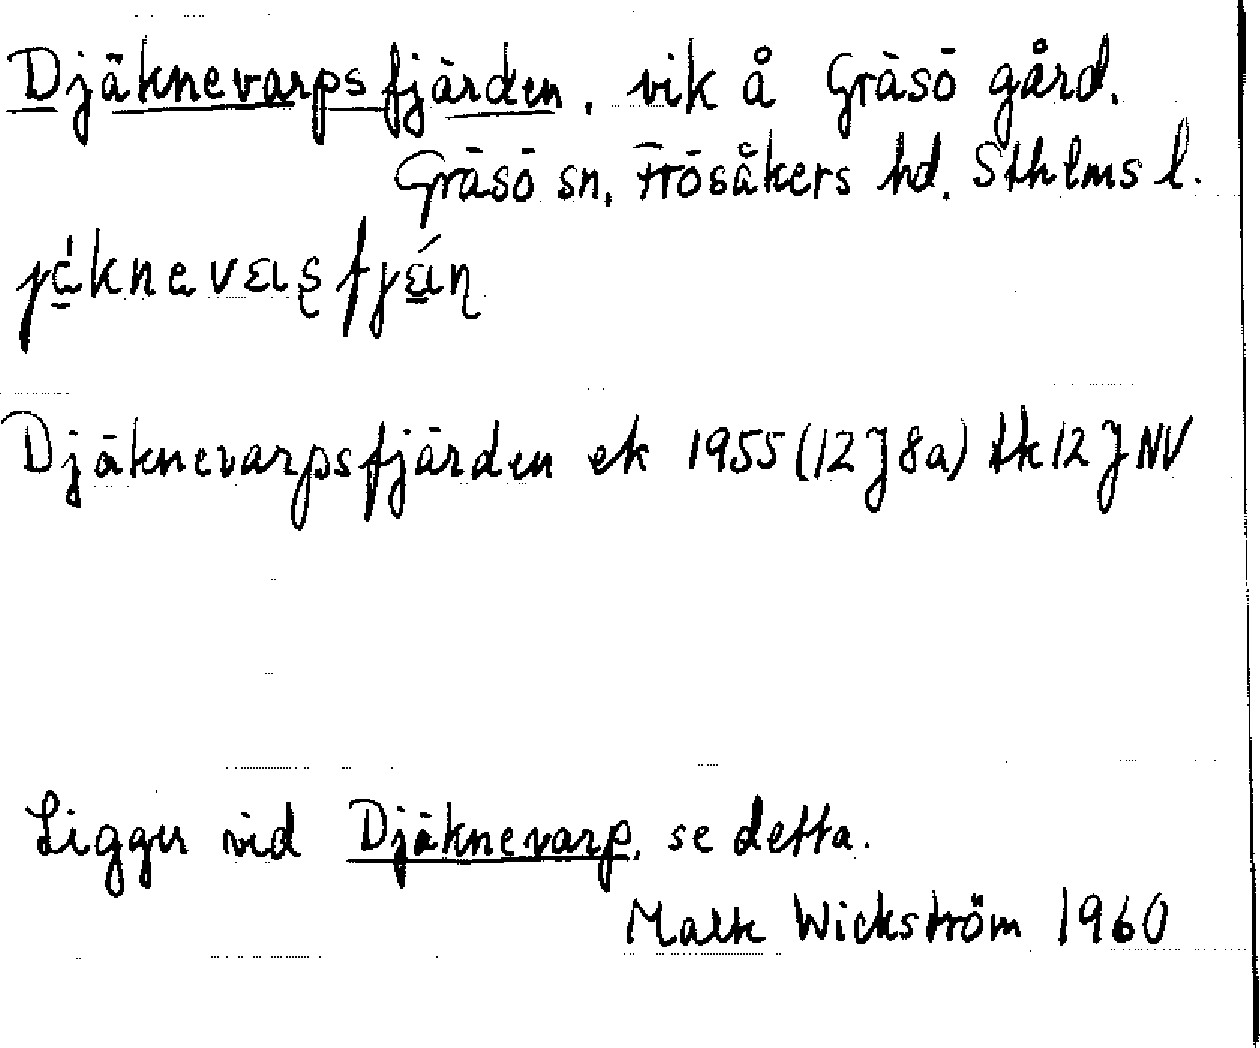 Djäknevarpsfjärden, vik å Gräsö gård.
Gräsö sn, Frösåkers hd. Sthlms l.
Djäknevarpsfjärden ek 1955 (12 J 8a) tk 12 J NV
Ligger vid Djäknevarp, se detta.
Wickström 1960